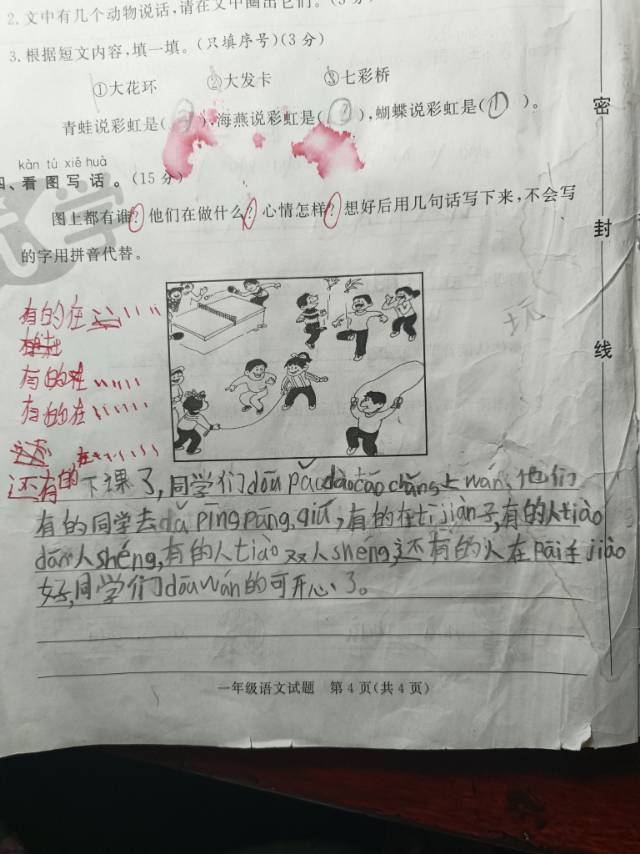 2.文中有几个动物说话,请在文中圈出它们。(3分)
3.根据短文内容,填一填。(只填序号)(3分)
①大花环 ②大发卡 ③七彩桥
青蛙说彩虹是( ),海燕说彩虹是( ),蝴蝶说彩虹是(①)。
kàn tú xiě huà
四、看图写话。(15分)
图上都有谁?他们在做什么?心情怎样?想好后用几句话写下来,不会写
的字用拼音代替。
有的在
有的在
有的在
还有的
下课了,同学们dōu pǎo dào cāo chǎng上wán,他们
有的同学去dǎ pīng pāng qiú,有的在tī jiàn子,有的人tiào
dān人shéng,有的人tiào双人shéng,还有的人在pāi手jiào
好,同学们dōu wán的可开心了。
一年级语文试题 第4页(共4页)
密
封
线
玩